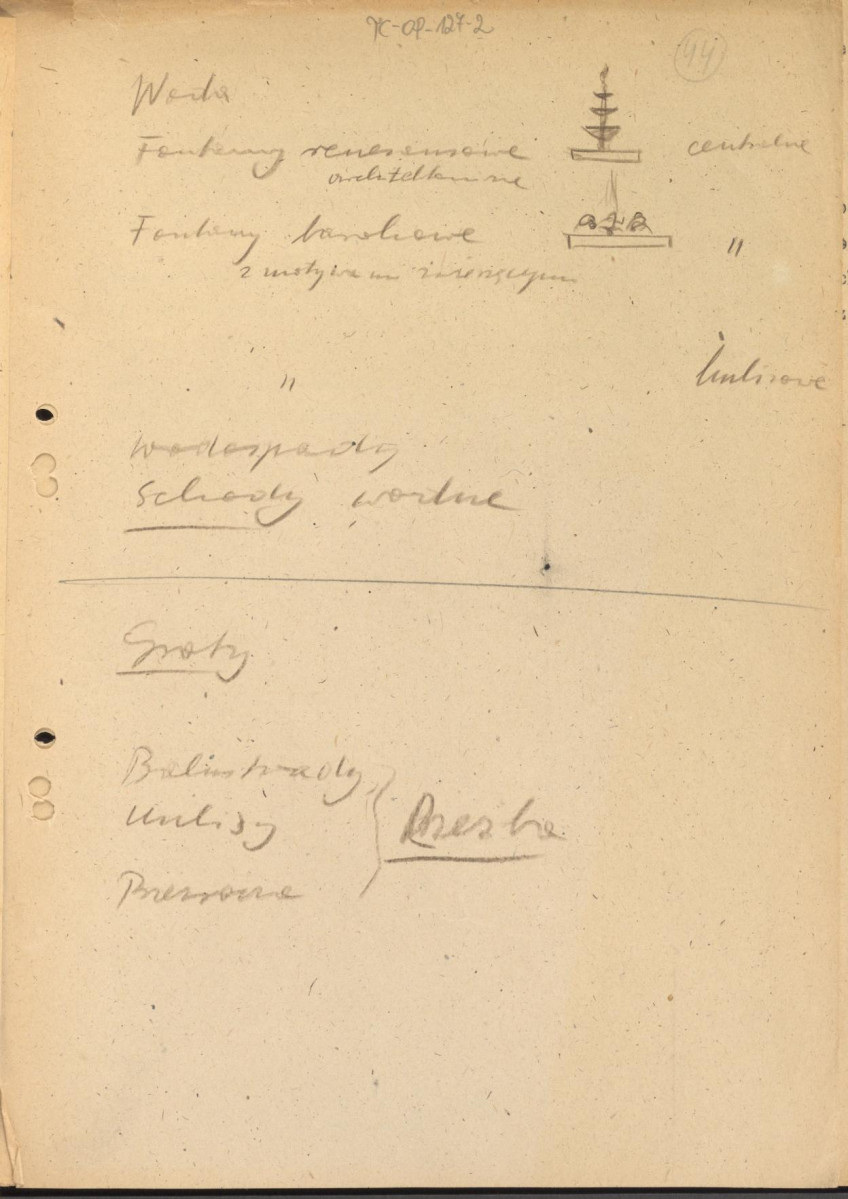 TC-OP-127-2
44
Woda
Fontanny renesansowe centralne
architektoniczne
Fontanny barokowe "
z motywami zwierzęcymi
" kulisowe
Wodospady
Schody wodne
Groty
Balustrady
Kulisy
Rzeźba